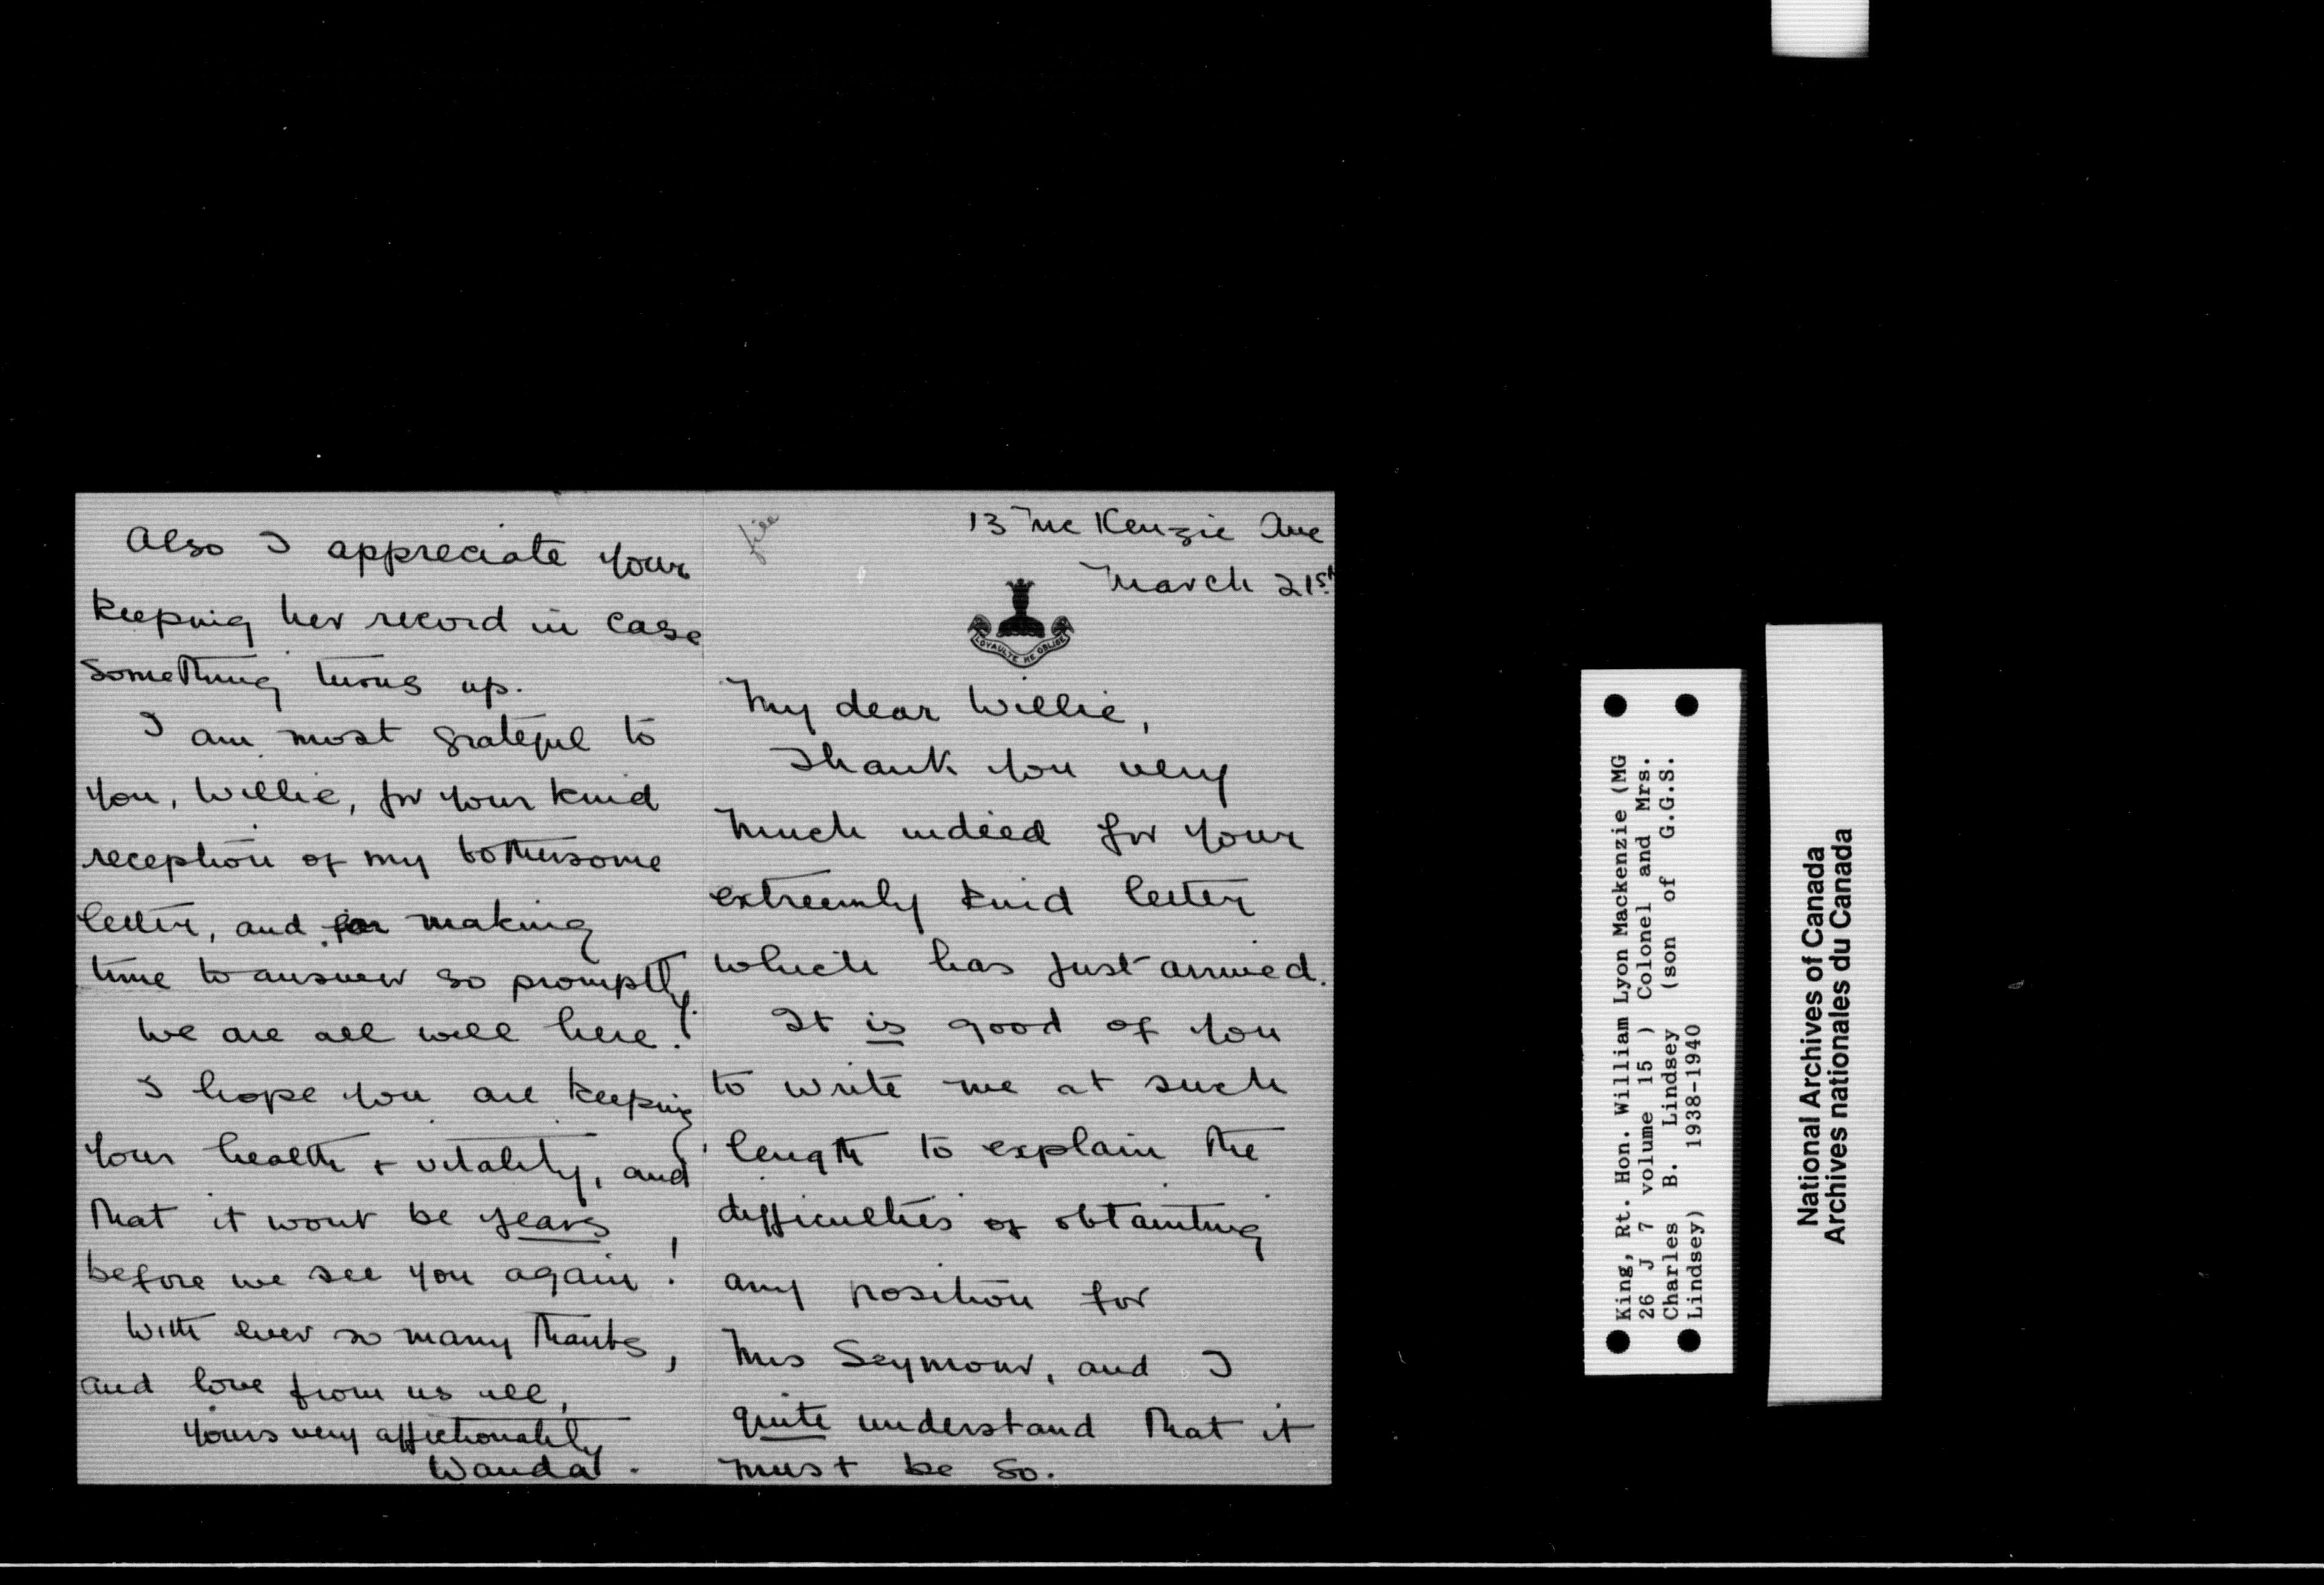 file
13 McKenzie Ave
March 21st
LOYAULTE ME OBLIGE
My dear Willie,
Thank you very
much indeed for your
extreemly kind letter
which has just arrived.
It is good of you
to write me at such
length to explain the
difficulties of obtainting
any position for
Mrs Seymour, and I
quite understand that it
must be so.
Also I appreciate your
keeping her record in case
something turns up.
I am most grateful to
you, Willie, for your kind
reception of my bothersome
letter, and for making
time to answer so promptly.
We are all well here.
I hope you are keeping
your health + vitality, and
that it wont be years
before we see you again!
With ever so many thanks,
and love from us all,
Yours very affectionately
Wanda.
King, Rt. Hon. William Lyon Mackenzie (MG
26 J 7 volume 15 ) Colonel and Mrs.
Charles B. Lindsey (son of G.G.S.
Lindsey) 1938-1940
National Archives of Canada
Archives nationales du Canada